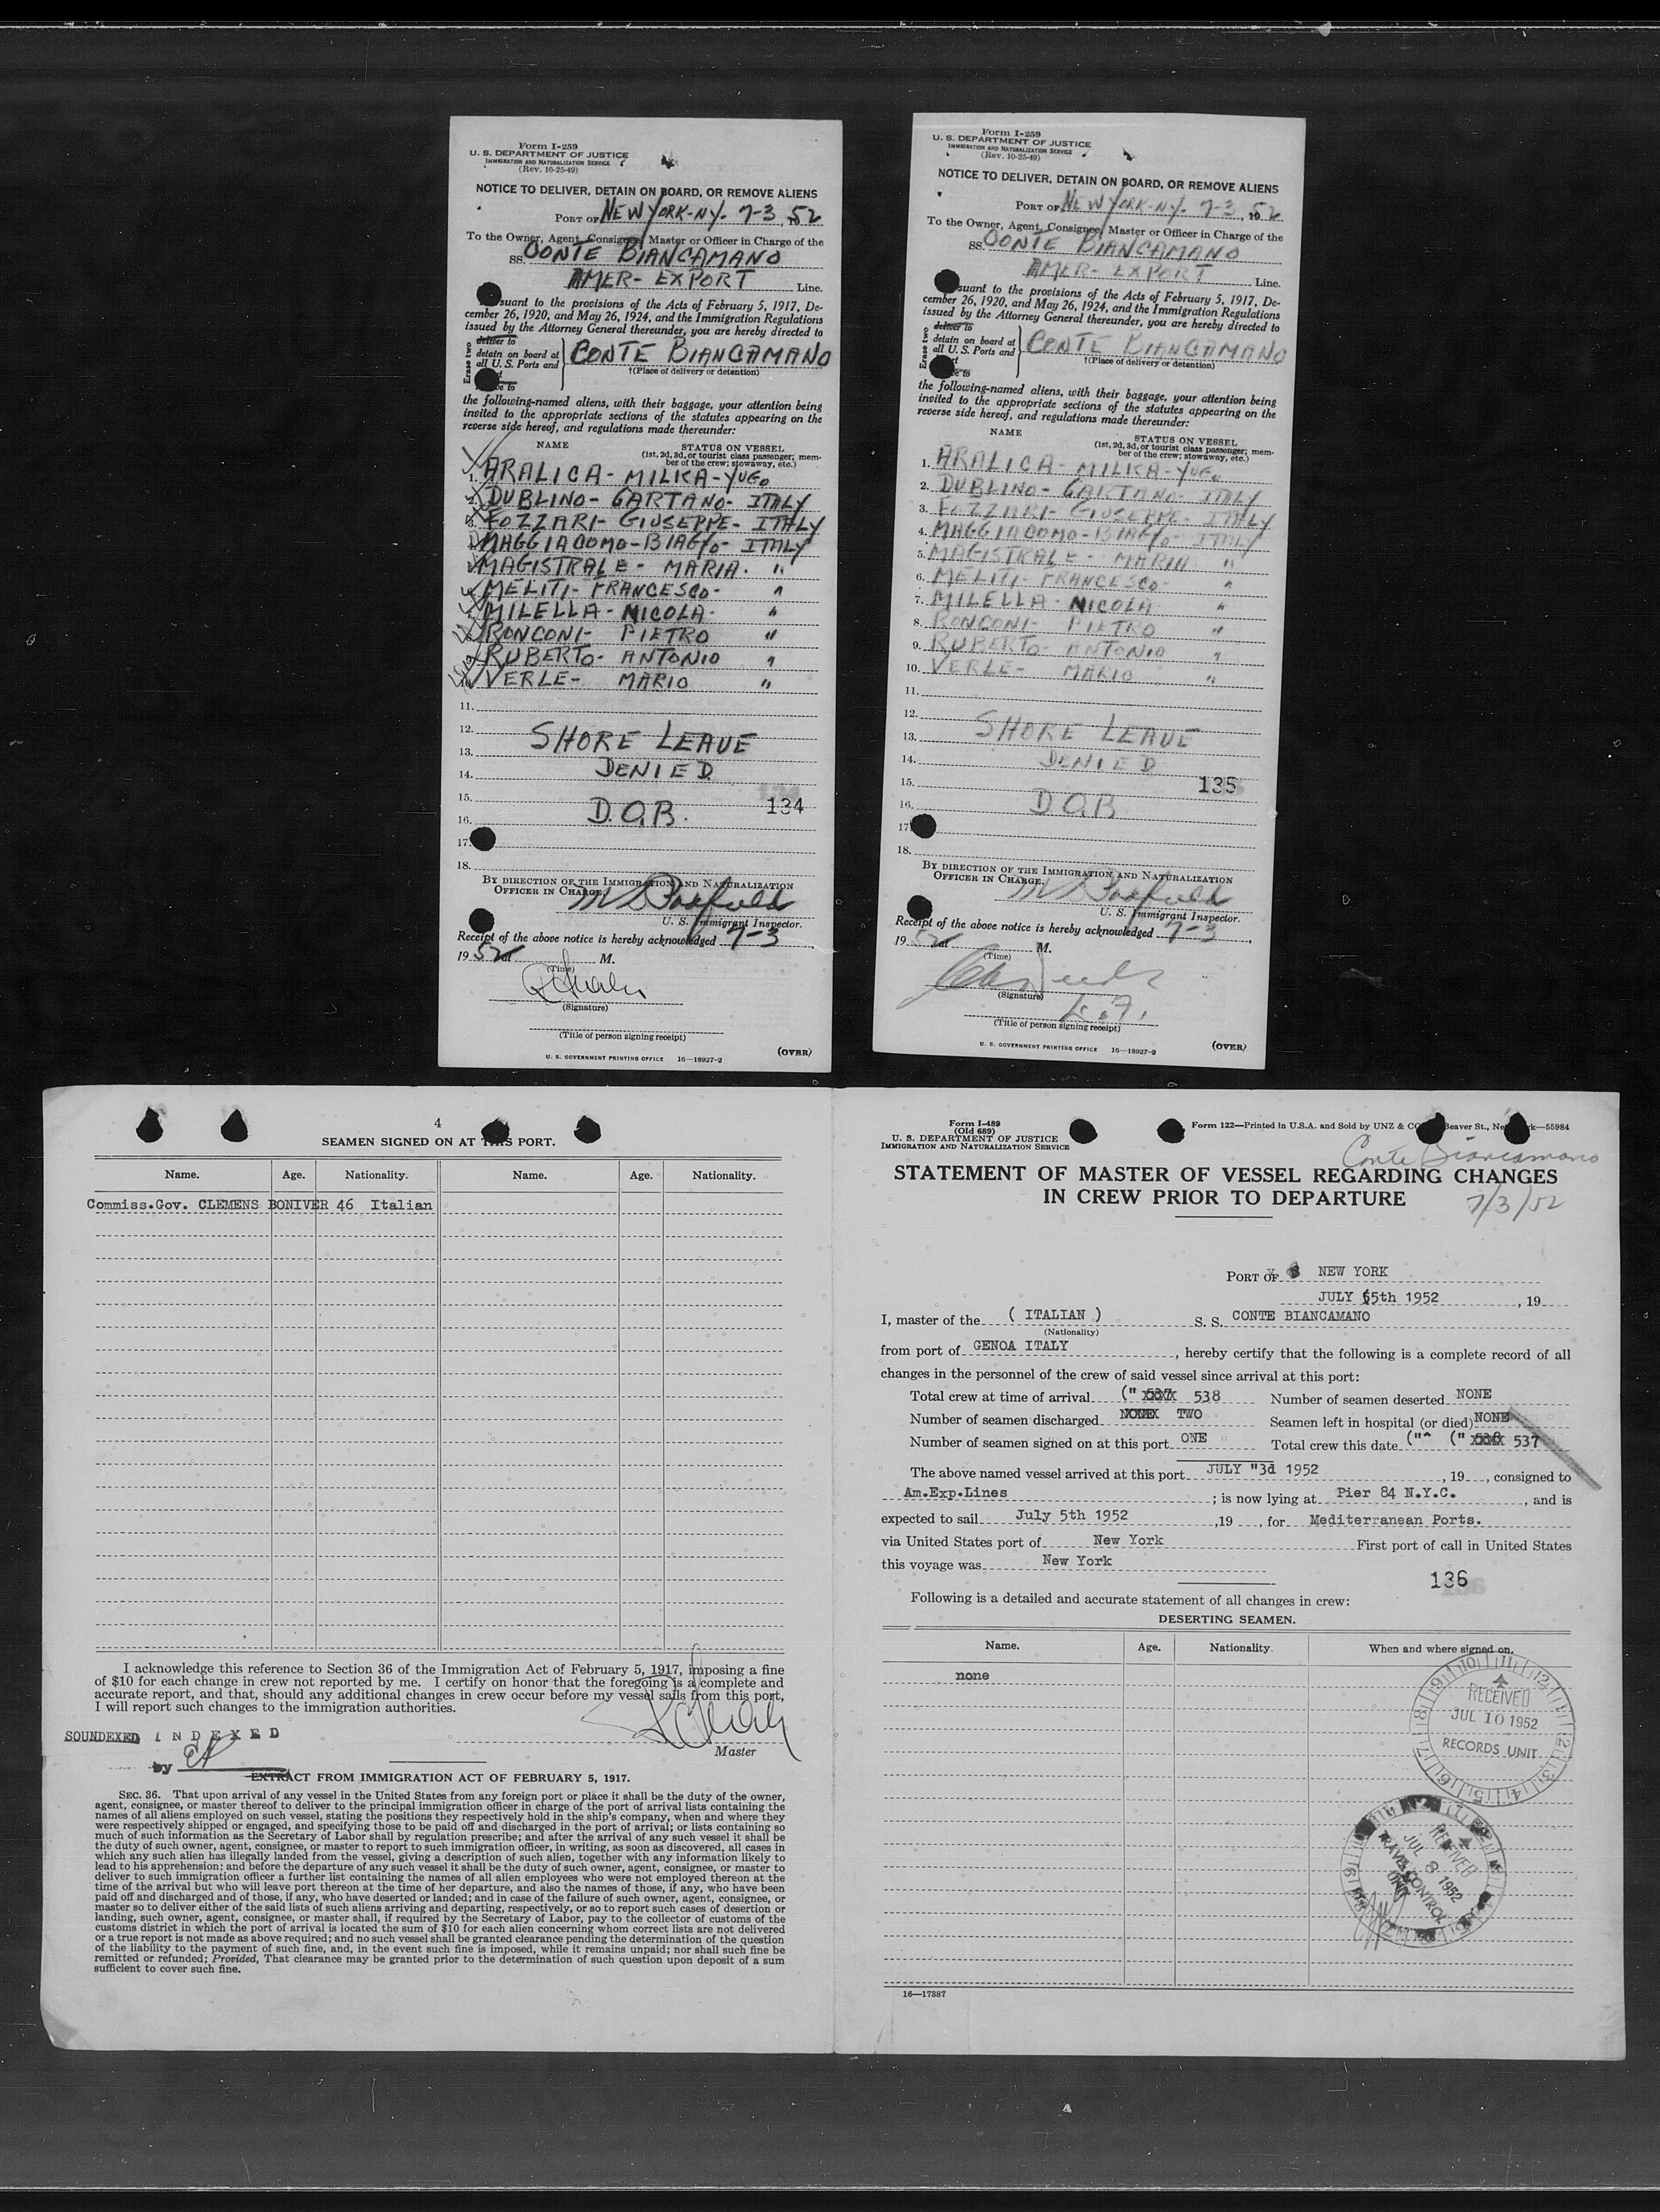 Form I-259
U. S. DEPARTMENT OF JUSTICE
IMMIGRATION AND NATURALIZATION SERVICE
(Rev. 10-25-49)
NOTICE TO DELIVER, DETAIN ON BOARD, OR REMOVE ALIENS
PORT OF NEW YORK-N.Y. 7-3, 1952
To the Owner, Agent, Consignee, Master or Officer in Charge of the
SS. CONTE BIANCAMANO
AMER-EXPORT Line.
suant to the provisions of the Acts of February 5, 1917, De-
cember 26, 1920, and May 26, 1924, and the Immigration Regulations
issued by the Attorney General thereunder, you are hereby directed to
Erase two
deliver to
detain on board at
all U. S. Ports and
CONTE BIANCAMANO
†(Place of delivery or detention)
the following-named aliens, with their baggage, your attention being
invited to the appropriate sections of the statutes appearing on the
reverse side hereof, and regulations made thereunder:
NAME STATUS ON VESSEL
(1st, 2d, 3d, or tourist class passenger; mem-
ber of the crew; stowaway, etc.)
1. ARALICA- MILKA-YUGO
2. DUBLINO- GAETANO- ITALY
3. FOZZARI- GIUSEPPE- ITALY
4. MAGGIACOMO-BIAGIO- ITALY
5. MAGISTRALE- MARIA. "
6. MELITI- FRANCESCO- "
7. MILELLA- NICOLA- "
8. RONCONI- PIETRO "
9. RUBERTO- ANTONIO "
10. VERLE- MARIO "
11.
12.
SHORE LEAVE
13.
DENIED
14.
15. 134
D.O.B.
16.
17.
18.
BY DIRECTION OF THE IMMIGRATION AND NATURALIZATION
OFFICER IN CHARGE,
U. S. Immigrant Inspector.
Receipt of the above notice is hereby acknowledged 7-3
1952 at M.
(Time)
(Signature)
(Title of person signing receipt)
U. S. GOVERNMENT PRINTING OFFICE 16—18927-2 (OVER)
Form I-259
U. S. DEPARTMENT OF JUSTICE
IMMIGRATION AND NATURALIZATION SERVICE
(Rev. 10-25-49)
NOTICE TO DELIVER, DETAIN ON BOARD, OR REMOVE ALIENS
PORT OF NEW YORK-N.Y. 7-3, 1952
To the Owner, Agent, Consignee, Master or Officer in Charge of the
SS. CONTE BIANCAMANO
AMER-EXPORT Line.
suant to the provisions of the Acts of February 5, 1917, De-
cember 26, 1920, and May 26, 1924, and the Immigration Regulations
issued by the Attorney General thereunder, you are hereby directed to
Erase two
deliver to
detain on board at
all U. S. Ports and
CONTE BIANCAMANO
†(Place of delivery or detention)
the following-named aliens, with their baggage, your attention being
invited to the appropriate sections of the statutes appearing on the
reverse side hereof, and regulations made thereunder:
NAME STATUS ON VESSEL
(1st, 2d, 3d, or tourist class passenger; mem-
ber of the crew; stowaway, etc.)
1. ARALICA- MILKA-YUGO
2. DUBLINO- GAETANO- ITALY
3. FOZZARI- GIUSEPPE- ITALY
4. MAGGIACOMO-BIAGIO- ITALY
5. MAGISTRALE- MARIA "
6. MELITI- FRANCESCO- "
7. MILELLA- NICOLA "
8. RONCONI- PIETRO "
9. RUBERTO- ANTONIO "
10. VERLE- MARIO "
11.
12.
SHORE LEAVE
13.
DENIED
14.
15. 135
D.O.B.
16.
17
18.
BY DIRECTION OF THE IMMIGRATION AND NATURALIZATION
OFFICER IN CHARGE.
U. S. Immigrant Inspector.
Receipt of the above notice is hereby acknowledged 7-3,
1952 M.
(Time)
(Signature)
(Title of person signing receipt)
U. S. GOVERNMENT PRINTING OFFICE 16—18927-2 (OVER)
4
SEAMEN SIGNED ON AT THIS PORT.
Name. Age. Nationality. Name. Age. Nationality.
Commiss.Gov. CLEMENS BONIVER 46 Italian
I acknowledge this reference to Section 36 of the Immigration Act of February 5, 1917, imposing a fine
of $10 for each change in crew not reported by me. I certify on honor that the foregoing is a complete and
accurate report, and that, should any additional changes in crew occur before my vessel sails from this port,
I will report such changes to the immigration authorities.
SOUNDEXED INDEXED
Master
by
EXTRACT FROM IMMIGRATION ACT OF FEBRUARY 5, 1917.
SEC. 36. That upon arrival of any vessel in the United States from any foreign port or place it shall be the duty of the owner,
agent, consignee, or master thereof to deliver to the principal immigration officer in charge of the port of arrival lists containing the
names of all aliens employed on such vessel, stating the positions they respectively hold in the ship's company, when and where they
were respectively shipped or engaged, and specifying those to be paid off and discharged in the port of arrival; or lists containing so
much of such information as the Secretary of Labor shall by regulation prescribe; and after the arrival of any such vessel it shall be
the duty of such owner, agent, consignee, or master to report to such immigration officer, in writing, as soon as discovered, all cases in
which any such alien has illegally landed from the vessel, giving a description of such alien, together with any information likely to
lead to his apprehension; and before the departure of any such vessel it shall be the duty of such owner, agent, consignee, or master to
deliver to such immigration officer a further list containing the names of all alien employees who were not employed thereon at the
time of the arrival but who will leave port thereon at the time of her departure, and also the names of those, if any, who have been
paid off and discharged and of those, if any, who have deserted or landed; and in case of the failure of such owner, agent, consignee, or
master so to deliver either of the said lists of such aliens arriving and departing, respectively, or so to report such cases of desertion or
landing, such owner, agent, consignee, or master shall, if required by the Secretary of Labor, pay to the collector of customs of the
customs district in which the port of arrival is located the sum of $10 for each alien concerning whom correct lists are not delivered
or a true report is not made as above required; and no such vessel shall be granted clearance pending the determination of the question
of the liability to the payment of such fine, and, in the event such fine is imposed, while it remains unpaid; nor shall such fine be
remitted or refunded; Provided, That clearance may be granted prior to the determination of such question upon deposit of a sum
sufficient to cover such fine.
Form I-489
(Old 689)
U. S. DEPARTMENT OF JUSTICE
IMMIGRATION AND NATURALIZATION SERVICE
Form 122—Printed in U.S.A. and Sold by UNZ & CO. Beaver St., New York—55984
Conte Biancamano
STATEMENT OF MASTER OF VESSEL REGARDING CHANGES
IN CREW PRIOR TO DEPARTURE
7/3/52
PORT OF NEW YORK
JULY 5th 1952, 19
I, master of the ( ITALIAN ) S. S. CONTE BIANCAMANO
(Nationality)
from port of GENOA ITALY, hereby certify that the following is a complete record of all
changes in the personnel of the crew of said vessel since arrival at this port:
Total crew at time of arrival (" 537 538 Number of seamen deserted NONE
Number of seamen discharged NONE TWO Seamen left in hospital (or died) NONE
Number of seamen signed on at this port ONE " Total crew this date ("" (" 538 537
The above named vessel arrived at this port JULY "3d 1952, 19, consigned to
Am.Exp.Lines; is now lying at Pier 84 N.Y.C., and is
expected to sail July 5th 1952, 19, for Mediterranean Ports.
via United States port of New York First port of call in United States
this voyage was New York
136
Following is a detailed and accurate statement of all changes in crew:
DESERTING SEAMEN.
Name. Age. Nationality. When and where signed on.
none
RECEIVED
JUL 10 1952
RECORDS UNIT
RECEIVED
JUL 8 1952
TRAVEL CONTROL
UNIT
16—17387